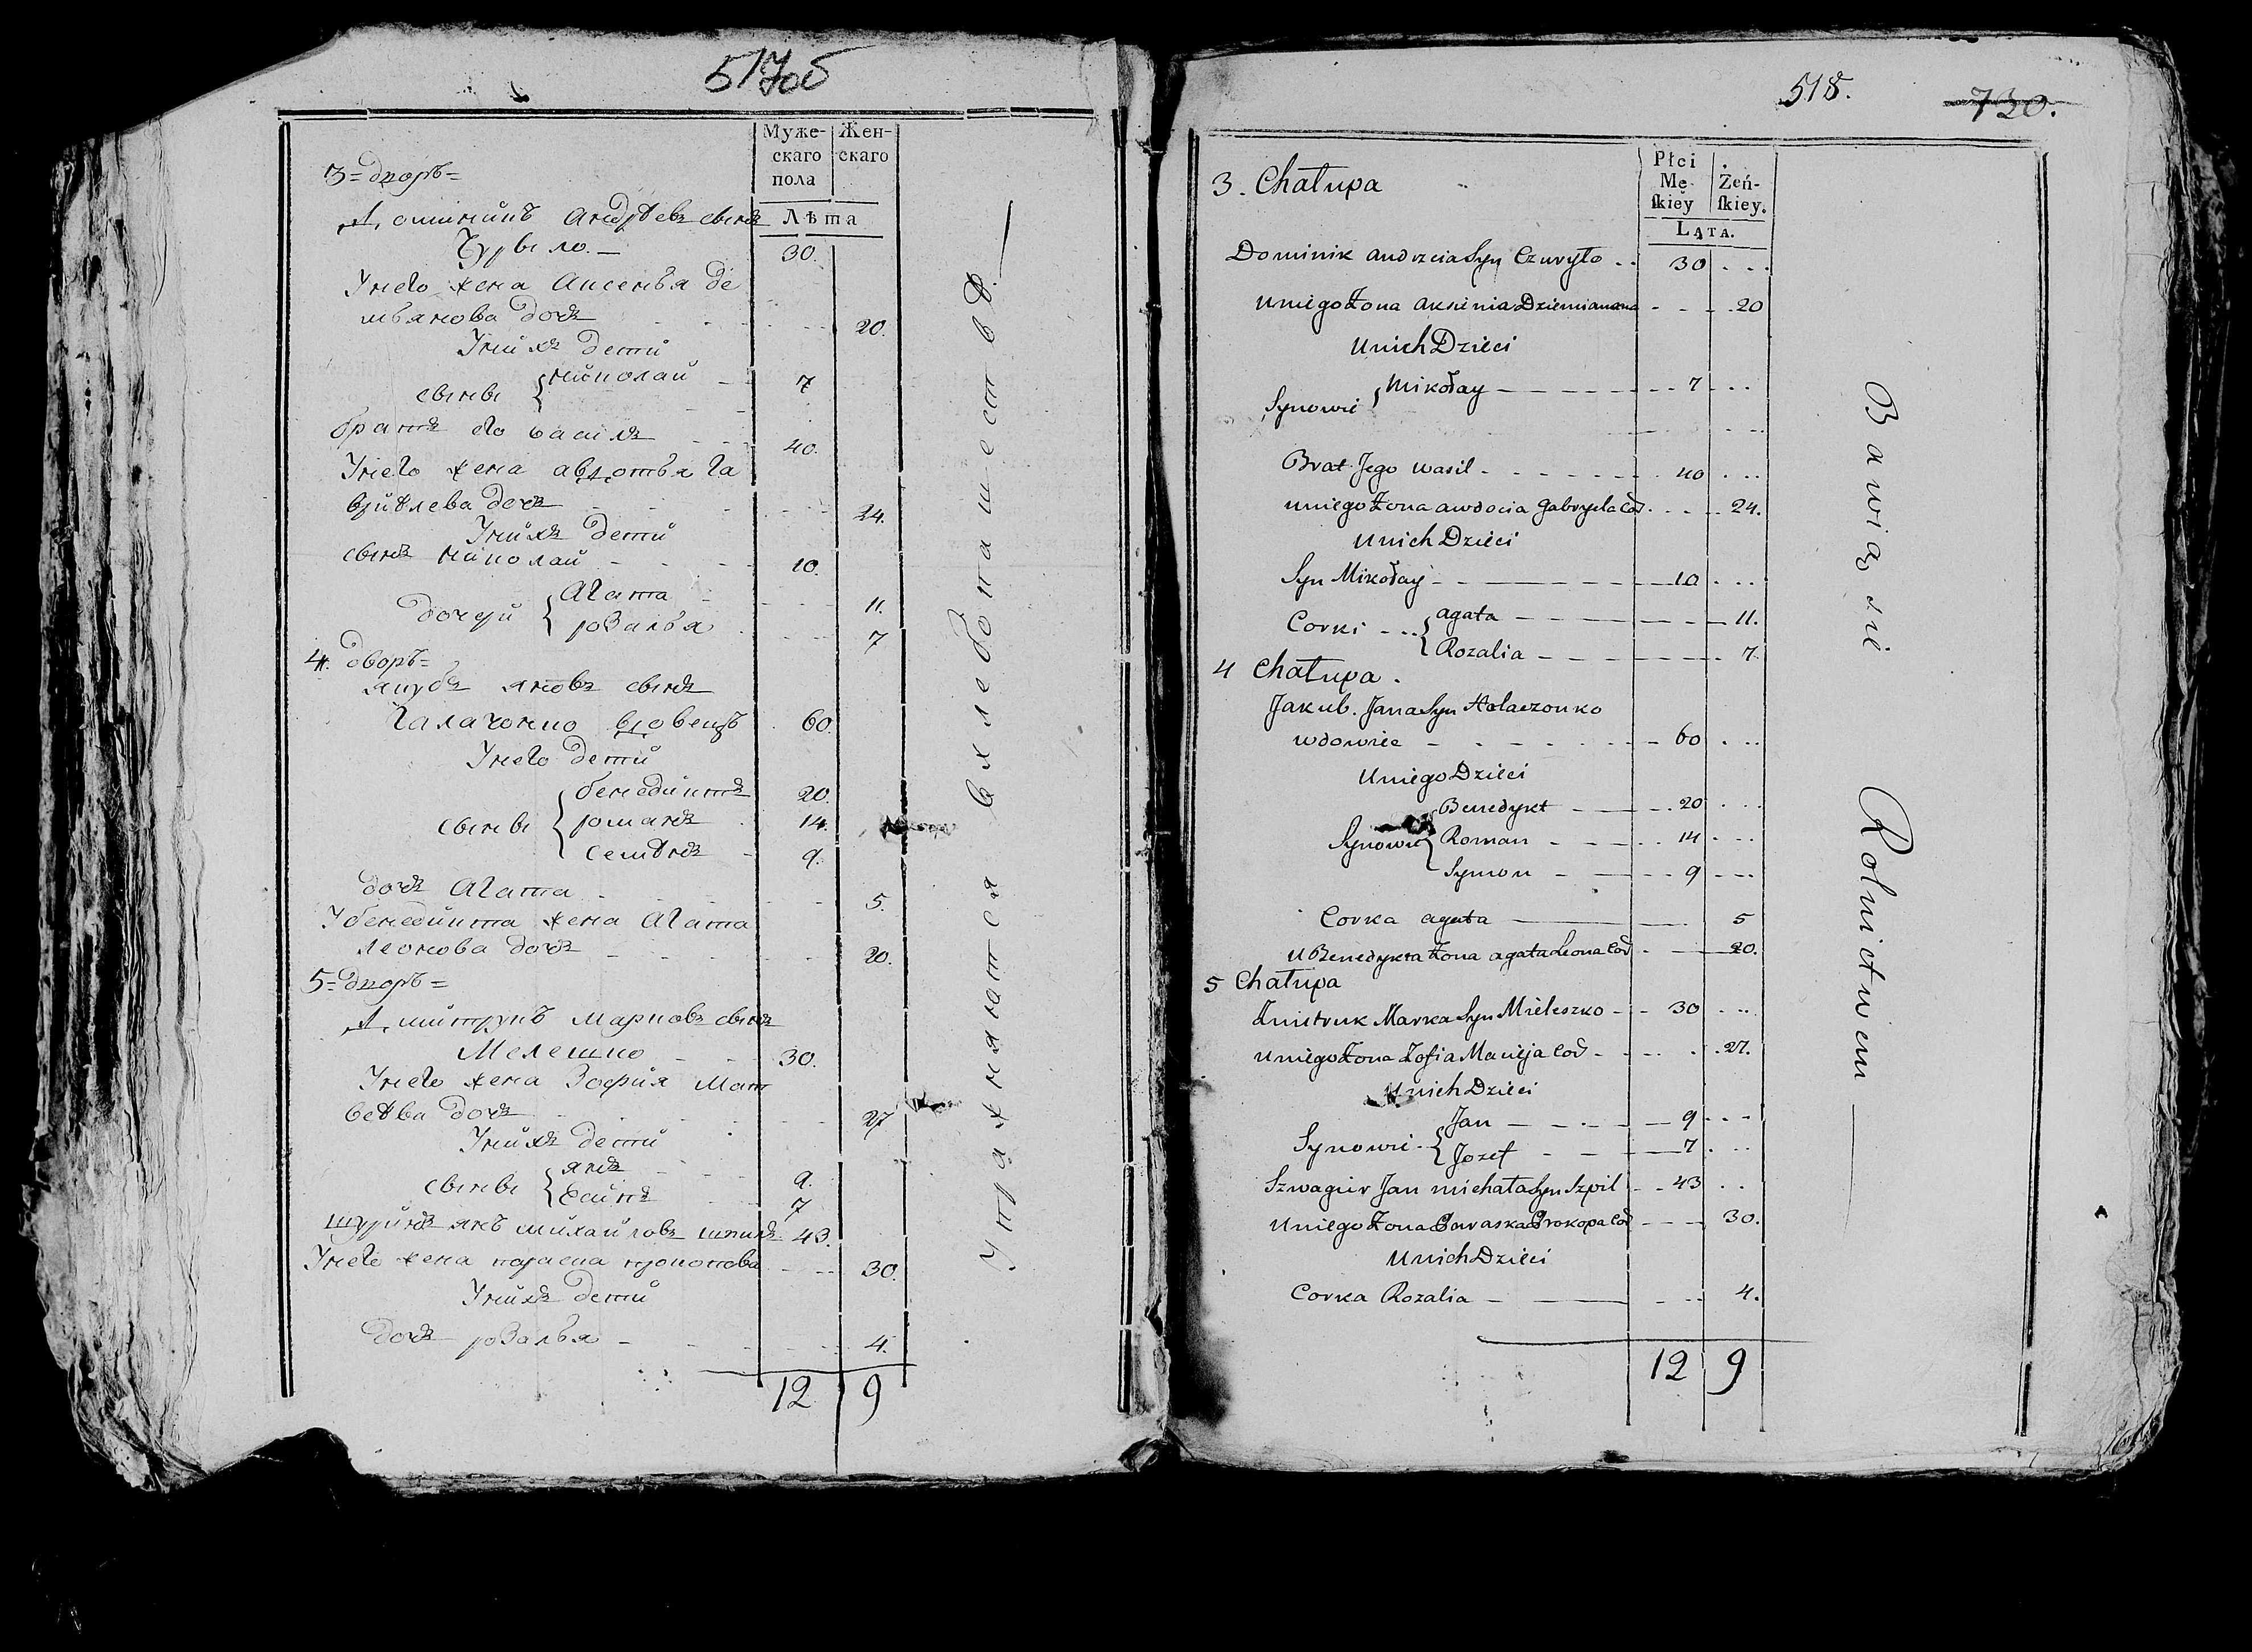 517об
Муже-
скаго
пола
Жен-
скаго
Лѣта
3 = дворъ =
Доминикъ Андрѣевъ сынъ
Чурыло. — 30.
У него жена Аксенья де
мьянова дочь 20.
У нихъ дети
сыны { николай — 7
братъ его василь 40.
У него жена авдотья га
врилева дочь 24.
У нихъ дети
сынъ николай 10.
дочери { Агата 11.
розалья 7
4. дворъ =
якубъ яновъ сынъ
Галачонко вдовецъ 60.
У него дети
сыны { бенедиктъ 20.
романъ 14.
семѣнъ 9.
дочь Агата 5.
У бенедикта жена Агата
леонова дочь 20.
5 = дворъ =
Дмитрукъ марковъ сынъ
Мелешко 30.
У него жена Зофия мат
вѣева дочь 27
У нихъ дети
сыны { янъ 9.
7
шуринъ янъ михайловъ шпиль 43.
У него жена параска прокопова 30.
У нихъ дети
дочь розалья 4.
12 9
Упражняются въ хлебопашествѣ. —
518.
730.
Płci
Mę-
skiey
Żeń-
skiey.
LATA.
3. Chałupa
Dominik Andrzeia Syn Czuryło .. 30 ...
u niego Żona Aksinia Dziemianowna - - - . 20
u nich Dzieci
Synowie { Mikołay — 7 ...
Brat Jego Wasil - - - 40 ...
u niego Żona Awdocia Gabryela Cor . - - . 24.
u nich Dzieci
Syn Mikołay - - — 10 ...
Corki - .. { agata — 11.
Rozalia — 7.
4 Chałupa .
Jakub . Jana Syn Holaczonko
wdowiec - - - 60 ...
u niego Dzieci
Synowie { Benedykt — 20 ...
Roman - — 14 ...
Symon - — 9 ...
Corka agata — 5
u Benedykta Żona agata Leona Cor - — 20.
5 Chałupa
Dmitruk Marka Syn Mieleszko - - 30 ...
u niego Żona Zofia Macieja Cor - - . . 27.
u nich Dzieci
Synowie - { Jan - - - 9 ...
Jozef - — 7 ...
Szwagier Jan michała Syn Szpil - . 43 ..
u niego Żona Paraska Prokopa Cor - - - 30.
u nich Dzieci
Corka Rozalia - — 4.
12 9
Bawią się Rolnictwem —